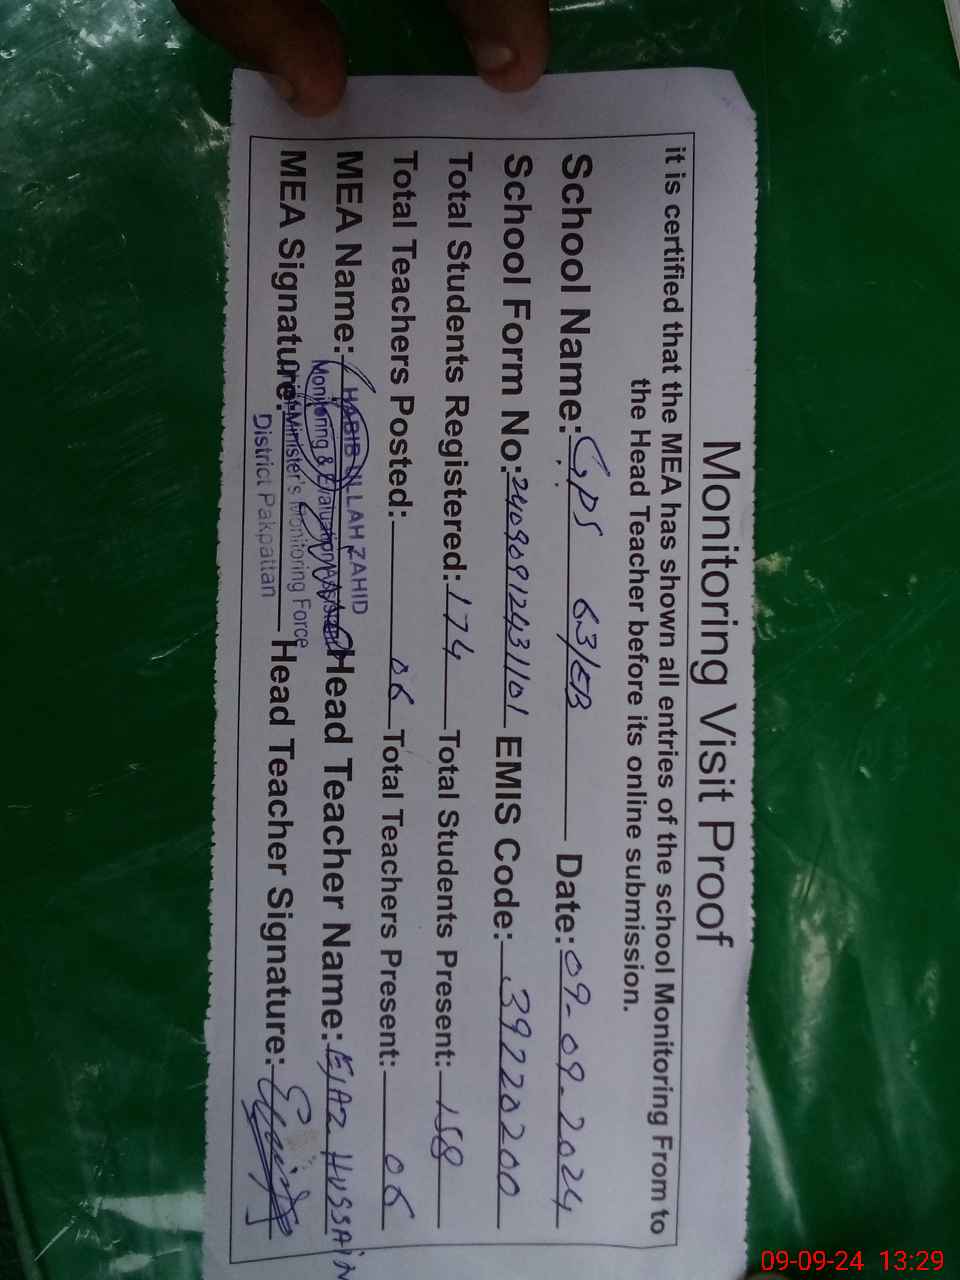 Monitoring Visit Proof
it is certified that the MEA has shown all entries of the school Monitoring From to
the Head Teacher before its online submission.
School Name: GPS 63/EB Date: 09-09-2024
School Form No: 24090912431101 EMIS Code: 39220200
Total Students Registered: 174 Total Students Present: 158
Total Teachers Posted: 06 Total Teachers Present: 06
MEA Name: HABIB ULLAH ZAHID Head Teacher Name: EJAZ HUSSAIN
Monitoring & Evaluation Assistant
Chief Minister's Monitoring Force
District Pakpattan
MEA Signature: Head Teacher Signature:
09-09-24 13:29